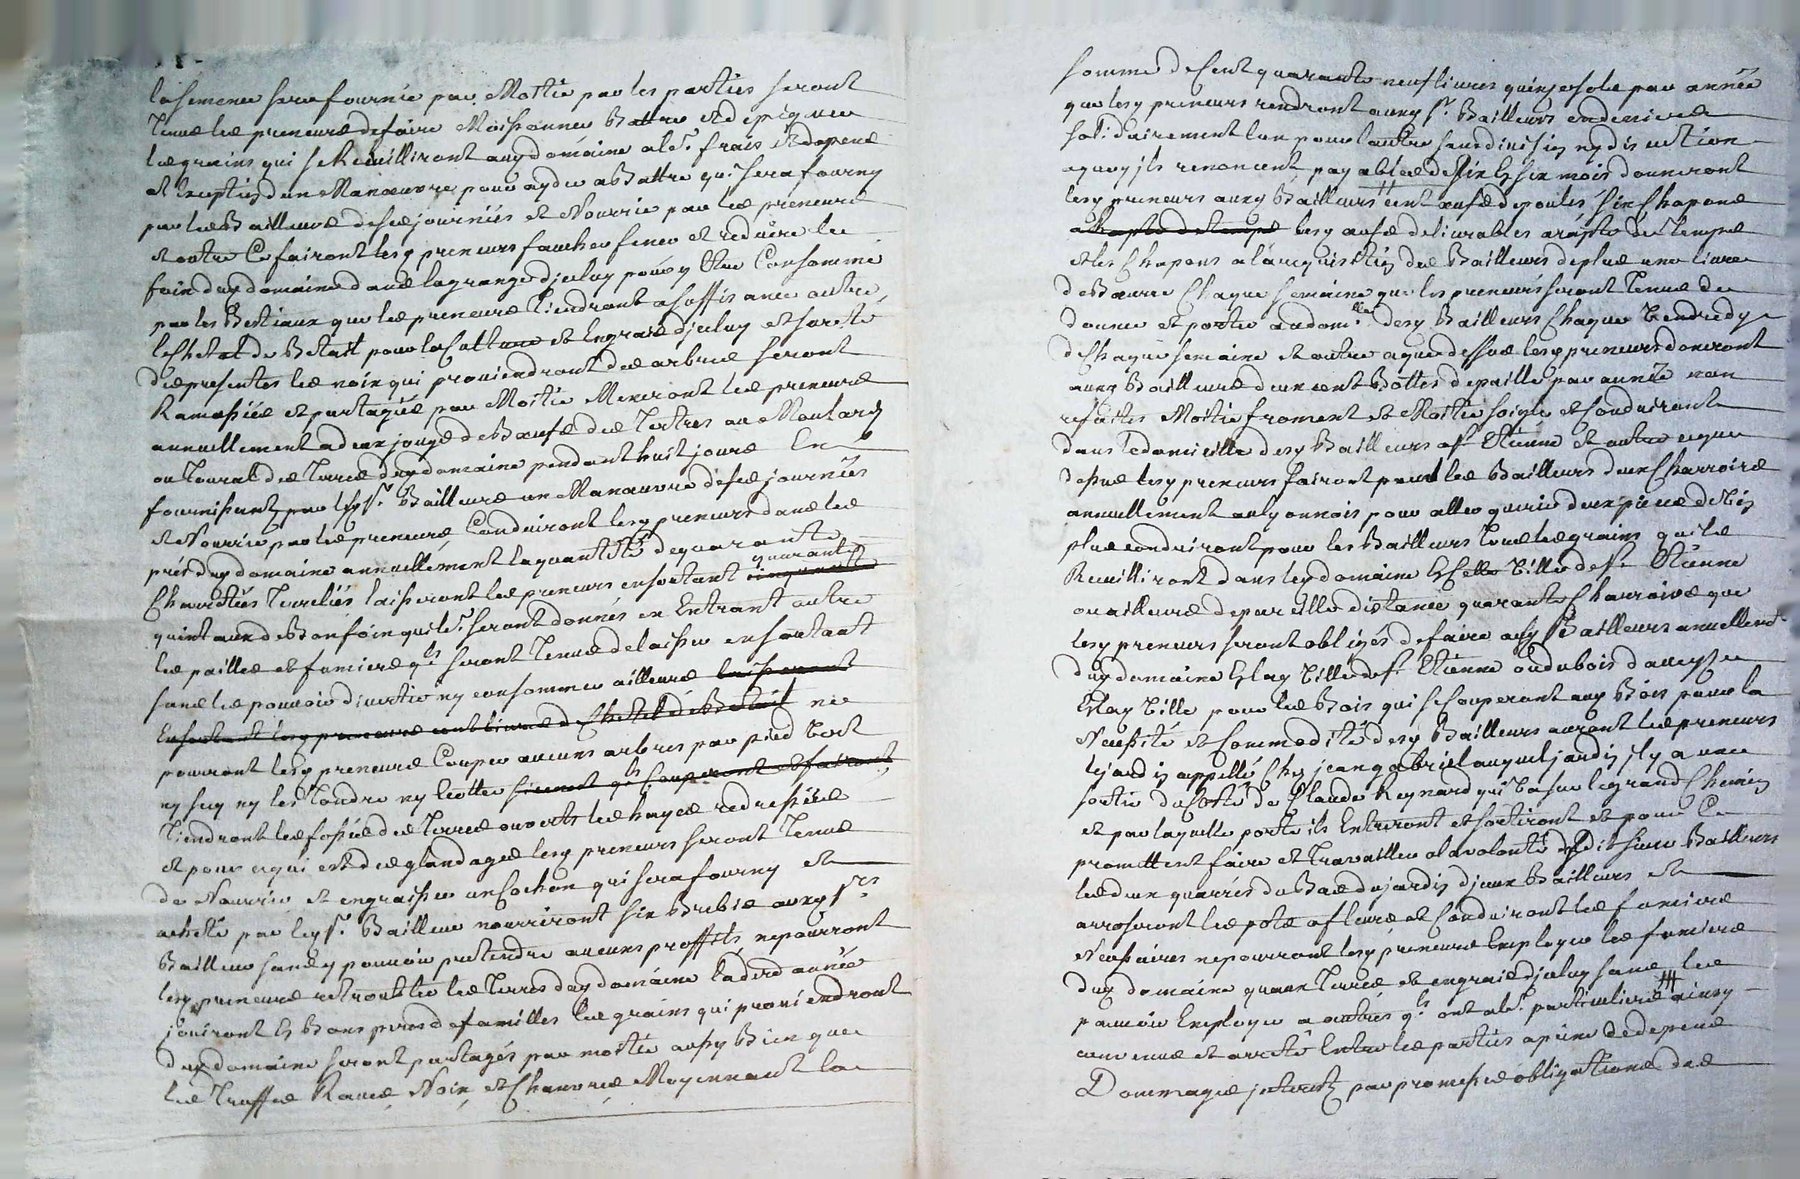 la semence sera fournie par Moitié par les parties seront
Tenus les preneurs de faire Moissonner Battre et depiquer
les grains qui se Reuilliront audy domaine a leur frais et depens
et Exceptés d'un Manœuvre pour ayder a Battre qui sera fourny
par les Bailleurs de ses journées et Nourrie par les preneurs
et outre Ce fairont lesy preneurs faucher fener et reduire le
foin duy domaine dans la grange djceluy pour y Etre Consommé
par les Bestiaux que les preneurs Tiendront a suffisance outre
le Chetal de Betail pour la Culture et Engrais djceluy et sorte
des presentes les noix qui proviendront des arbres seront
Ramassées et partagées par Moitié Meneront les preneurs
annuellement a deux jougs de Bœufs des Tertres au
ou Toural des Terres duy domaine pendant huit jours En
fournissant par lesy srs Bailleurs un Manœuvre de ses journées
et Nourrie par les preneurs Conduiront lesy preneurs dans les
prés duy domaine annuellement la quantité de quarante
quarante
Charretées Terreliés laisseront les preneurs en sortant cinquante
quintaux de Bon foin qui leur seront donnés en Entrant outre
les pailles et fumiers qls seront Tenus de laisser en sortant
sans les pouvoir divertir ny consommer ailleurs laisseront
En sortant lesy preneurs cent livres de Chetal de Betail ne
pourront lesy preneurs Couper aucuns arbres par pied Vert
ny sec ny les Tondre ny
Tiendront les fossés des Terres ouverts les hayes redressées
et pour ce qui est des glandages lesy preneurs seront Tenus
de Nourrir et engraisser un Cochon qui sera fourny et
acheté par lesy sr Bailleur nourriront six Brebis auxy srs
Bailleur sans y pouvoir pretendre aucuns proffits ne pourront
lesy preneurs retroubler les Terres duy domaine la derd année
jouiront En Bons peres de familles les grains qui proviendront
duy domaine seront partagés par moitié aussy Bien que
les Truffes Raves Noix et Chanvres Moyennant la
somme de Cent quarante neuf livres quinze sols par année
que lesy preneurs rendront auxy srs Bailleurs en deniers
solidairement l'un pour l'autre sans division ny discution
a quoy jls renoncent payables de six En six mois donneront
lesy preneurs auxy Bailleurs cent œufs de poules six Chapons
a Rapte de temps lesy œufs delivrables a rapte de Temps
et les Chapons a la requisition des Bailleurs de plus une livre
de Beurre Chaque semaine que les preneurs seront Tenus de
donner et porter au domlle desy Bailleurs Chaque Vendredy
de Chaque semaine et outre ce que dessus lesy preneurs doneront
auxy Bailleurs deux cent Bottes de paille par année non
refaites Moitié froment et Moitié soigle et Conduiront
dans le domicille desy Bailleurs a st Etienne et outre ce que
dessus lesy preneurs fairont pour les Bailleurs deux Charrois
annuellement au lyonnois pour aller querir deux pieces de Vin
plus conduiront pour les Bailleurs Tous les grains qui se
Reuilliront dans ley domaine En cette Ville de st Etienne
ou ailleurs de pareille distance quarante Charrois que
lesy preneurs seront obligés de faire auxy Bailleurs annuellemt
duy domaine En lay Ville de st Etienne ou du bois
En lay Ville pour les Bois qui se Couperont auxy Bois pour la
Necessité et Commodité desy Bailleurs auront les preneurs
le jardin appellé Chez jean gabriel auquel jardin jl y a une
sortie du Coté de Claude Reynard qui Va sur le grand Chemin
et par laquelle porte ils Entreront et sortiront et pour Ce
promettent faire et Travailler a la volonté desdit sieurs Bailleurs
les deux quarrés du Bas du jardin djceux Bailleurs et
arroseront les pots a fleurs et Conduiront les fumiers
Necessaires ne pourront lesy preneurs Employer les fumiers
duy domaine qu'aux Terres et engrais djceluy sans les
pouvoir Employer a autres qls ont a leur particulier ainsy
convenus et arreté Entre les parties a peine de depens
Dommages jnterets par promesses obligations des